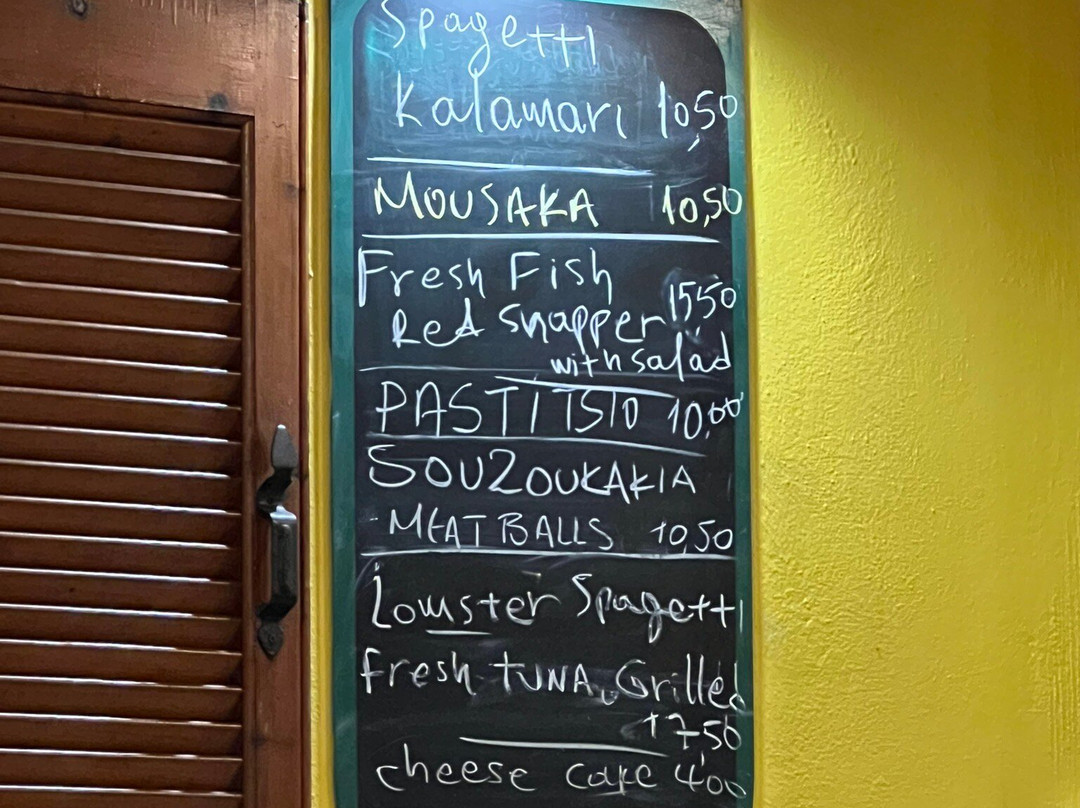 Spagetti
Kalamari 10,50
MOUSAKA 10,50
Fresh Fish
Red Snapper 15,50
with salad
PASTITSIO 10,00
SOUZOUKAKIA
-MEATBALLS 10,50
Lomster Spagetti
Fresh TUNA Grilled
17,50
cheese cake 4,00